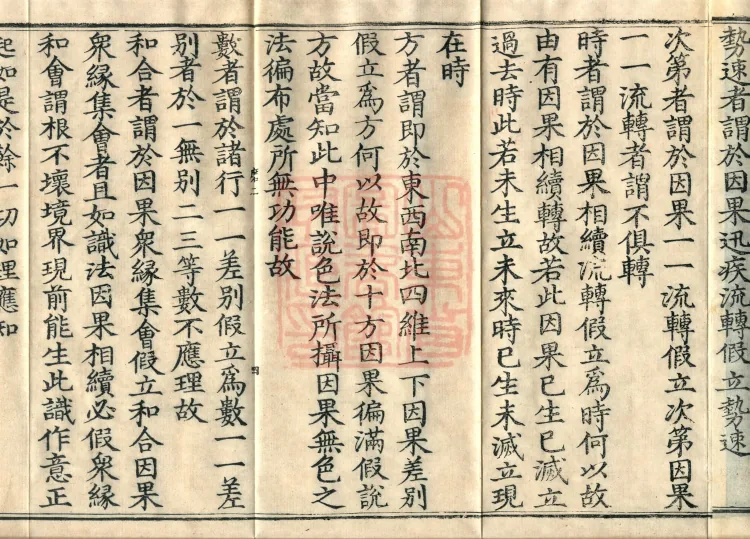 勢速者謂於因果迅疾流轉假立勢速
次第者謂於因果一一流轉假立次第因果
一一流轉者謂不俱轉
時者謂於因果相續流轉假立爲時何以故
由有因果相續轉故若此因果已生已滅立
過去時此若未生立未來時已生未滅立現
在時
方者謂即於東西南北四維上下因果差別
假立爲方何以故即於十方因果徧滿假說
方故當知此中唯說色法所攝因果無色之
法徧布處所無功能故
數者謂於諸行一一差別假立爲數一一差
別者於一無別二三等數不應理故
和合者謂於因果衆緣集會假立和合因果
衆緣集會者且如識法因果相續必假衆緣
和會謂根不壞境界現前能生此識作意正
起如是於餘一切如理應知